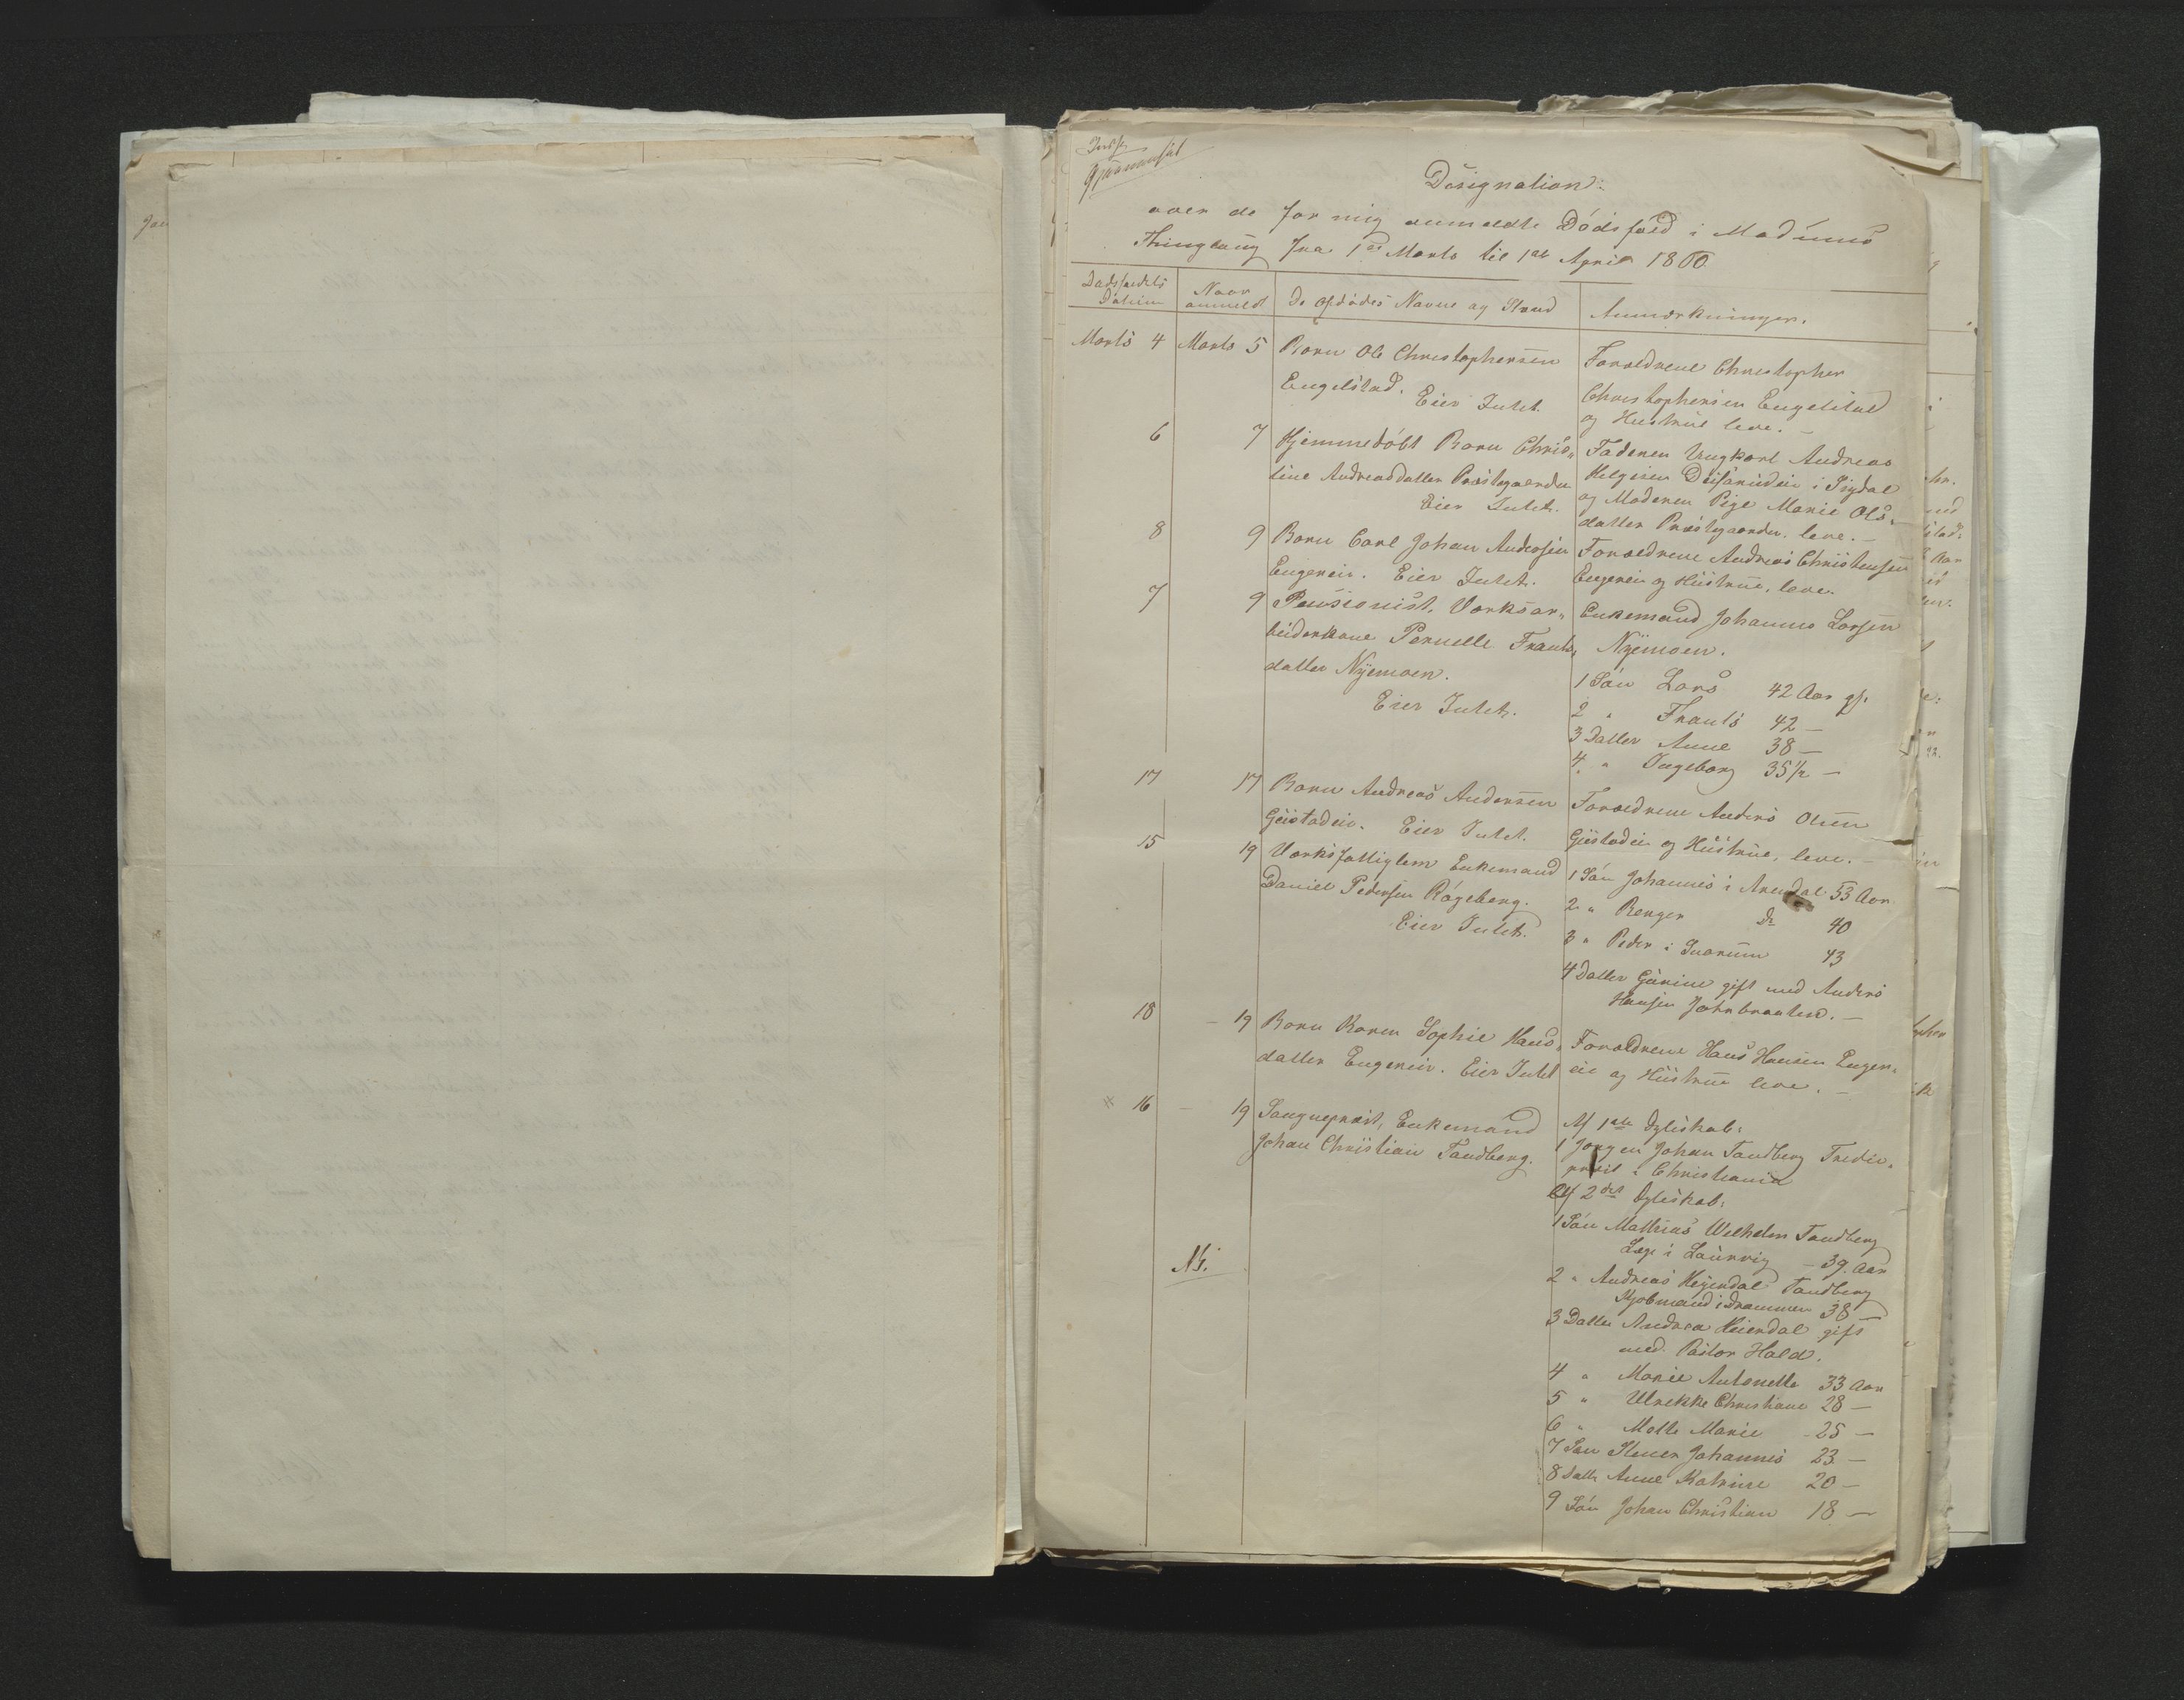 Designation
over de for mig anmeldte Dødsfald i Modums
Thinglaug fra 1ste Marts til 1ste April 1860
Dødsfaldets Datum
Naar anmeldt
De Afdødes Navne og Stand
Anmærkninger.
Marts 4 Marts 5 Barn Ole Christophersen
Engelstad.
Eier Intet.
Forældrene Christopher
Christophersen Engelstad
og Hustrue leve. –
6 7 Hjemmedøbt Barn Chris„
tine Andreasdatter Præstegaarden
Eier Intet.
Faderen Ungkarl Andreas
Helgesen i Sigdal
og Moderen Pige Marie Ols„
datter Præstegaarden. leve. –
8 9 Barn Carl Johan Andersen
Engereie. Eier Intet.
Forældrene Andreas Christensen
Engereie og Hustrue, leve.
7 9 Pensionist, Værksar„
beiderkone Pernelle Frants„
datter Nyemoen.
Eier Intet.
Enkemand Johannes Larsen
Nyemoen.
1 Søn Lars 42 Aar gf.
2 " Frants 42 –
3 Datter Anne 38 –
4 " Ingeborg 35½ –
17 17 Barn Andreas Andersen
Gustadeie. Eier Intet.
Forældrene Anders Olsen
Gustadeie og Hustrue, leve. –
15 19 Værksfattiglem Enkemand
Daniel Pedersen Røgeberg.
Eier Intet.
1 Søn Johannes i Arendal 53 Aar
2 " Renger do 40
3 " Peder i Snarum 43
4 Datter Gurine gift med Anders
Hansen Johnbraaten. –
18 – 19 Barn Karen Sophie Hans„
datter Engereie. Eier Intet
Forældrene Hans Hansen Enger„
eie og Hustrue leve. –
16 – 19 Sognepræst, Enkemand
Johan Christian Tandberg.
Af 1ste Ægteskab:
1 Jørgen Johan Tandberg
præst i Christiania
Af 2det Ægteskab:
1 Søn Mathias Wilhelm Tandberg
Læge i Laurvig – 39 Aar
2 " Andreas Heyerdal Tandberg
Kjøbmand i Drammen 38 –
3 Datter Andrea Heierdal gift
med Pastor Hald.
4 " Marie Antonette 33 Aar
5 " Ulrikke Christiane 28 –
6 " Molle Marie 25 –
7 Søn Stener Johannes 23 –
8 Datt Anne Katrine 20 –
9 Søn Johan Christian 18 –